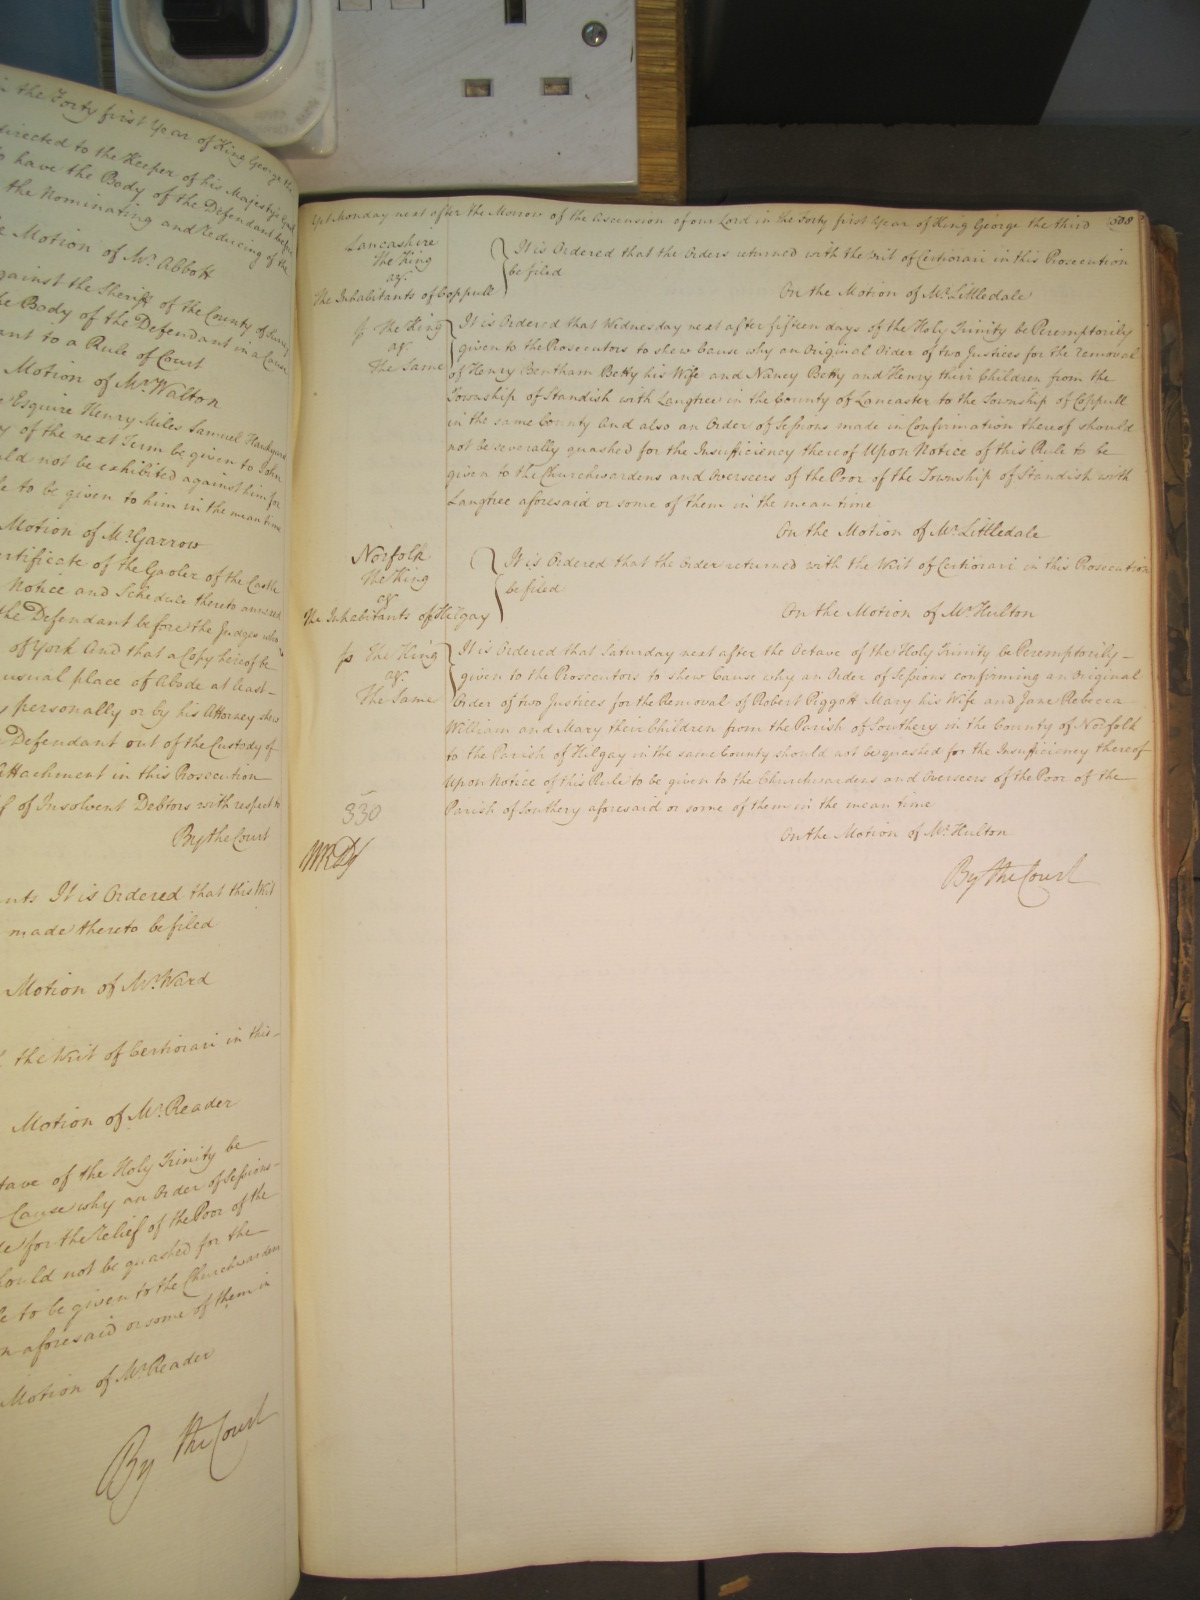 in the Forty first Year of King George the
directed to the Keeper of his Majesty's Gaol
to have the Body of the Defendant before
the Nominating and reducing of the
Motion of Mr. Abbott
against the Sheriff of the County of Surry
the Body of the Defendant in a Cause
ant to a Rule of Court
Motion of Mr. Walton
Esquire Henry Miles Samuel
of the next Term be given to John
uld not be exhibited against him for
le to be given to him in the mean time
Motion of Mr. Garrow
ertificate of the Gaoler of the Castle
Notice and Schedule thereto annexed
the Defendant before the Judges who
of York And that a Copy hereof be
usual place of Abode at least
personally or by his Attorney shew
Defendant out of the Custody of
Attachment in this Prosecution
of Insolvent Debtors with respect to
By the Court
nts It is Ordered that this Writ
made thereto be filed
Motion of Mr. Ward
the Writ of Certiorari in this
Motion of Mr. Reader
tave of the Holy Trinity be
Cause why an Order of Sessions
for the relief of the Poor of the
hould not be quashed for the
le to be given to the Churchwardens
n aforesaid or some of them in
Motion of Mr. Reader
By the Court
Yet Monday next after the Morrow of the Ascension of our Lord in the Forty first Year of King George the third 508
Lancashire
The King
agt.
The Inhabitants of Coppull
It is Ordered that the Orders returned with the Writ of Certiorari in this Prosecution
be filed
On the Motion of Mr. Littledale
The King
agt.
The Same
It is Ordered that Wednesday next after fifteen days of the Holy Trinity be Peremptorily
given to the Prosecutors to shew Cause why an Original Order of two Justices for the removal
of Henry Bentham Betty his Wife and Nancy Betty and Henry their Children from the
Township of Standish with Langtree in the County of Lancaster to the Township of Coppull
in the same County And also an Order of Sessions made in Confirmation thereof should
not be severally quashed for the Insufficiency thereof Upon Notice of this Rule to be
given to the Churchwardens and Overseers of the Poor of the Township of Standish with
Langtree aforesaid or some of them in the mean time
On the Motion of Mr. Littledale
Norfolk
The King
agt.
The Inhabitants of Hilgay
It is Ordered that the Order returned with the Writ of Certiorari in this Prosecution
be filed
On the Motion of Mr. Hulton
The King
agt.
The Same
It is Ordered that Saturday next after the Octave of the Holy Trinity be Peremptorily
given to the Prosecutors to shew Cause why an Order of Sessions confirming an Original
Order of two Justices for the Removal of Robert Piggott Mary his Wife and Jane Rebecca
William and Mary their Children from the Parish of Southery in the County of Norfolk
to the Parish of Hilgay in the same County should not be quashed for the Insufficiency thereof
Upon Notice of this Rule to be given to the Churchwardens and Overseers of the Poor of the
Parish of Southery aforesaid or some of them in the mean time
On the Motion of Mr. Hulton
330
By the Court